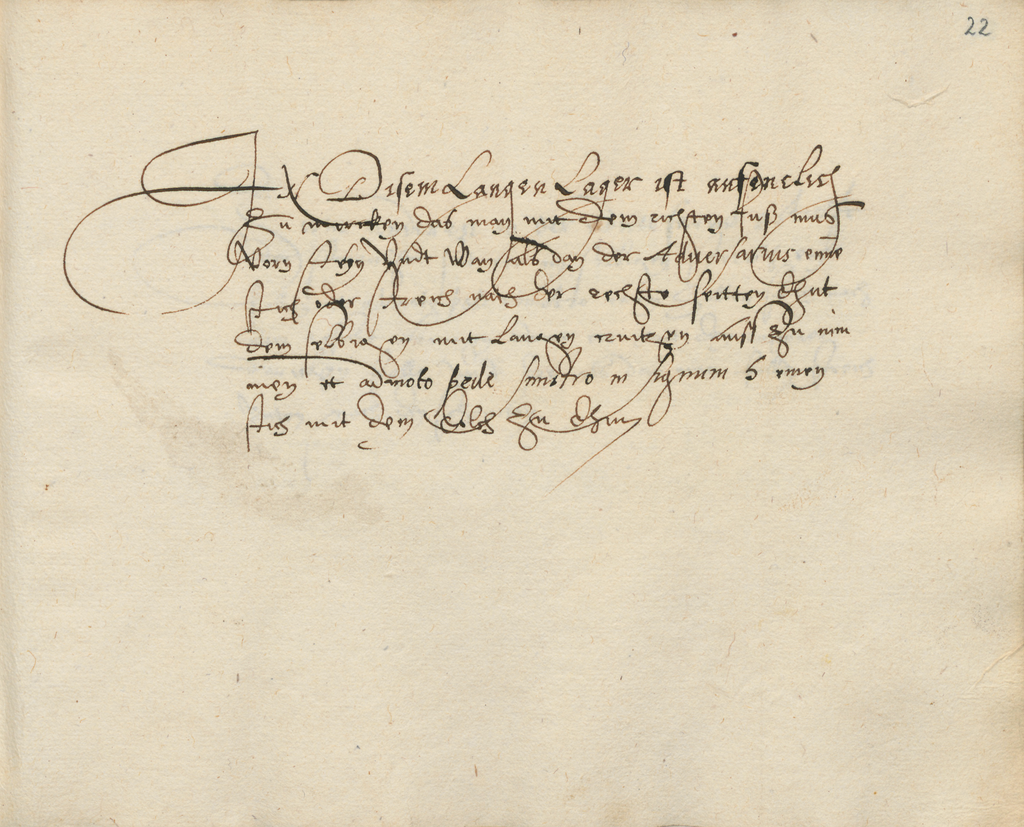 22
In Disem Langen Lager ist ansenclich
Zu mercken das man mit dem richten fuß mus
Vorn stehn Vndt Wan als dan der Adversarius eine
stich oder streich nach der rechste seitten thut
dem selbigen mit langen creutzen auss zu nim
men et admoto pede sinistro in signum 5 einen
stich mit dem dolch zu thun